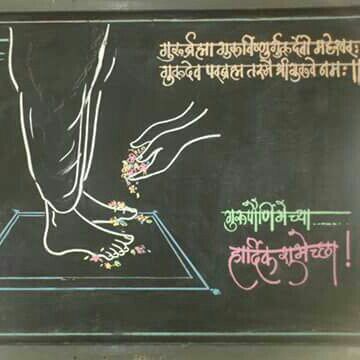 गुरुर्ब्रह्मा गुरुर्विष्णुर्गुरुर्देवो महेश्वरः
गुरुदेव परब्रह्म तस्मै श्रीगुरुवे नमः ॥
गुरुपौर्णिमेच्या
हार्दिक शुभेच्छा !